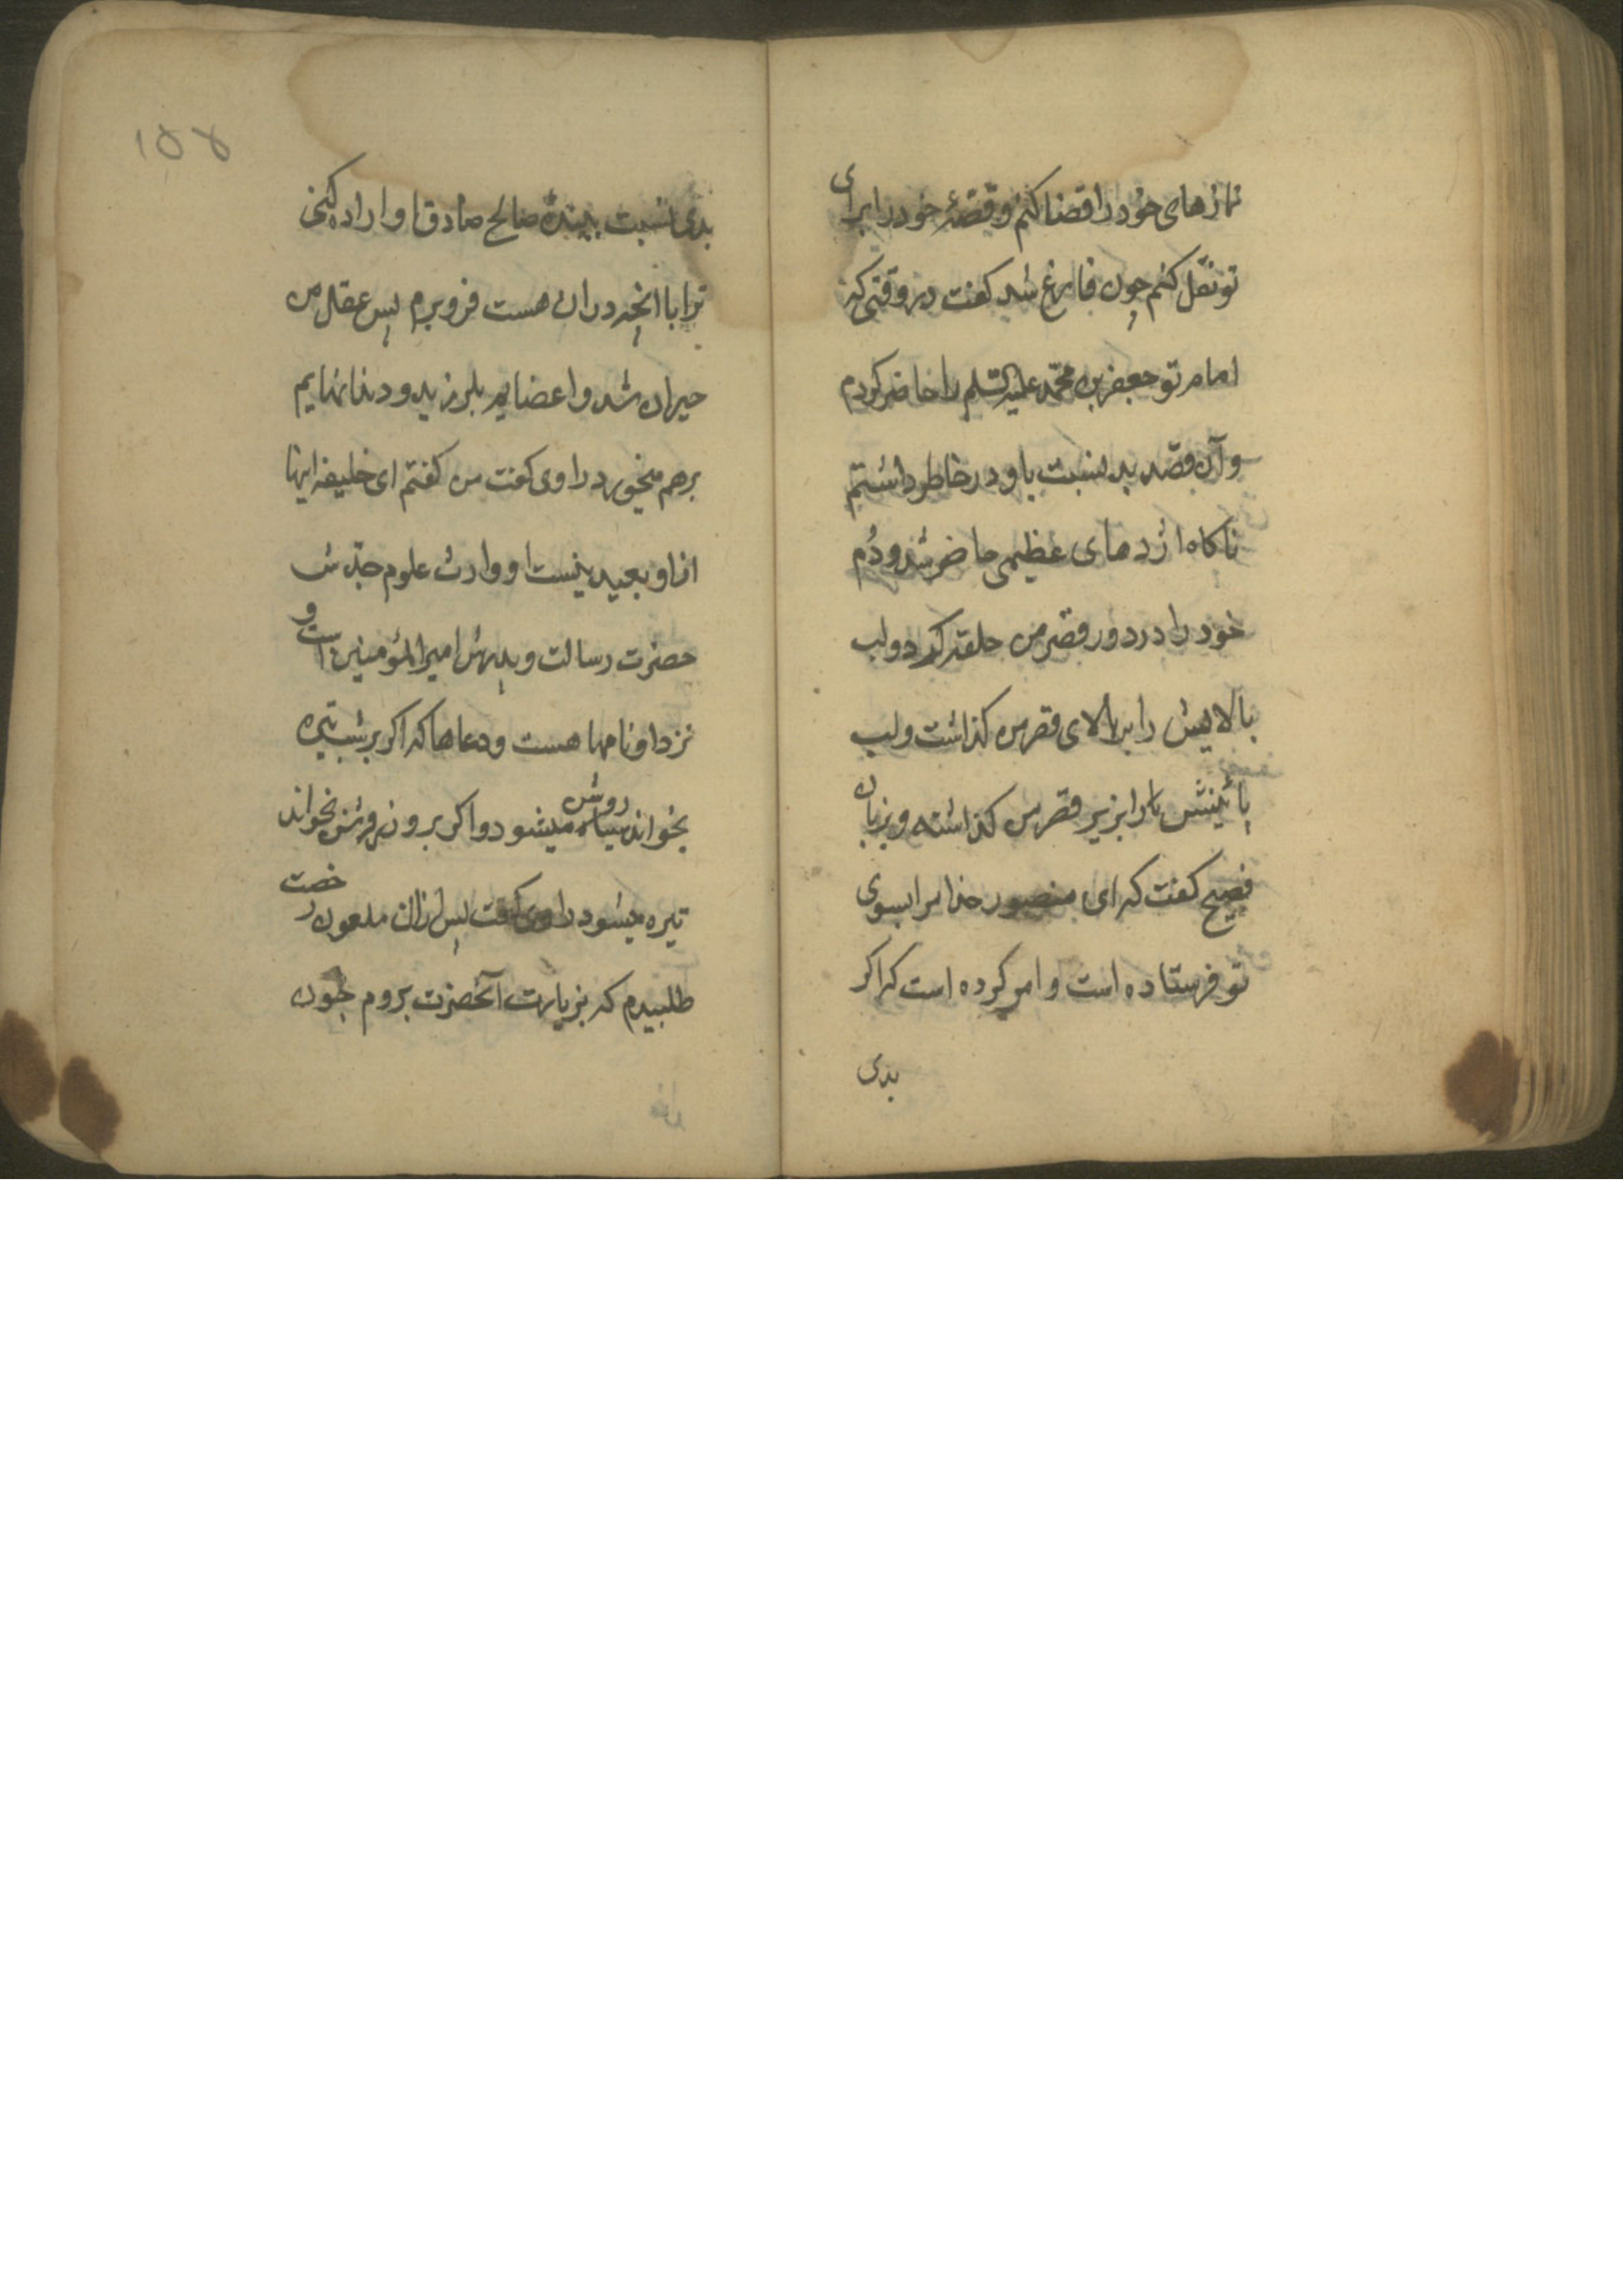 نمازهای خود را قضا کنم و قصّهٔ خود را برای
تو نقل کنم چون فارغ شد کفت در وقتی که
امام تو جعفر بن محمّد علیه السّلم را حاضر کردم
و آن قصد بد نسبت باو در خاطر داشتم
ناکاه اژدهای عظیمی حاضر شد و دُم
خود را در دور قصر من حلقه کرد و لب
بالایش را بر بالای قصر من کذاشت و لب
پائینش را بزیر قصر من کذاشته و بزبان
فصیح کفت که ای منصور خدا مرا بسوی
تو فرستاده است و امر کرده است که اکر
بدی
۱۵۵
بدی نسبت ببندهٔ صالح صادق او اراده کنی
ترا با انچه در ان هست فرو برم پس عقل من
حیران شد و اعضایم بلرزید و دندانهایم
برهم میخورد راوی کفت من کفتم ای خلیفه اینها
از او بعید نیست او وارث علوم جدّش
حضرت رسالت و پدرش امیرالمؤمنین است و
نزد او نامها هست و دعاها که اکر بر شب تیره
بخواند روشن میشود و اکر بر روز روشن بخواند
تیره میشود راوی کفت پس از ان ملعون رخصت
طلبیدم که بزیارت آنحضرت بروم چون